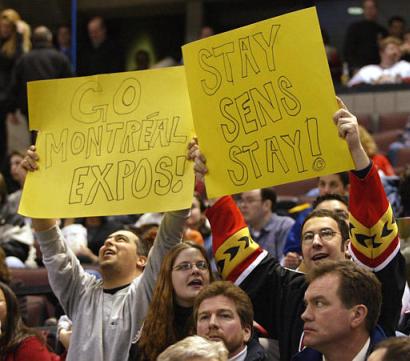 GO
MONTRÉAL
EXPOS!
STAY
SENS
STAY!